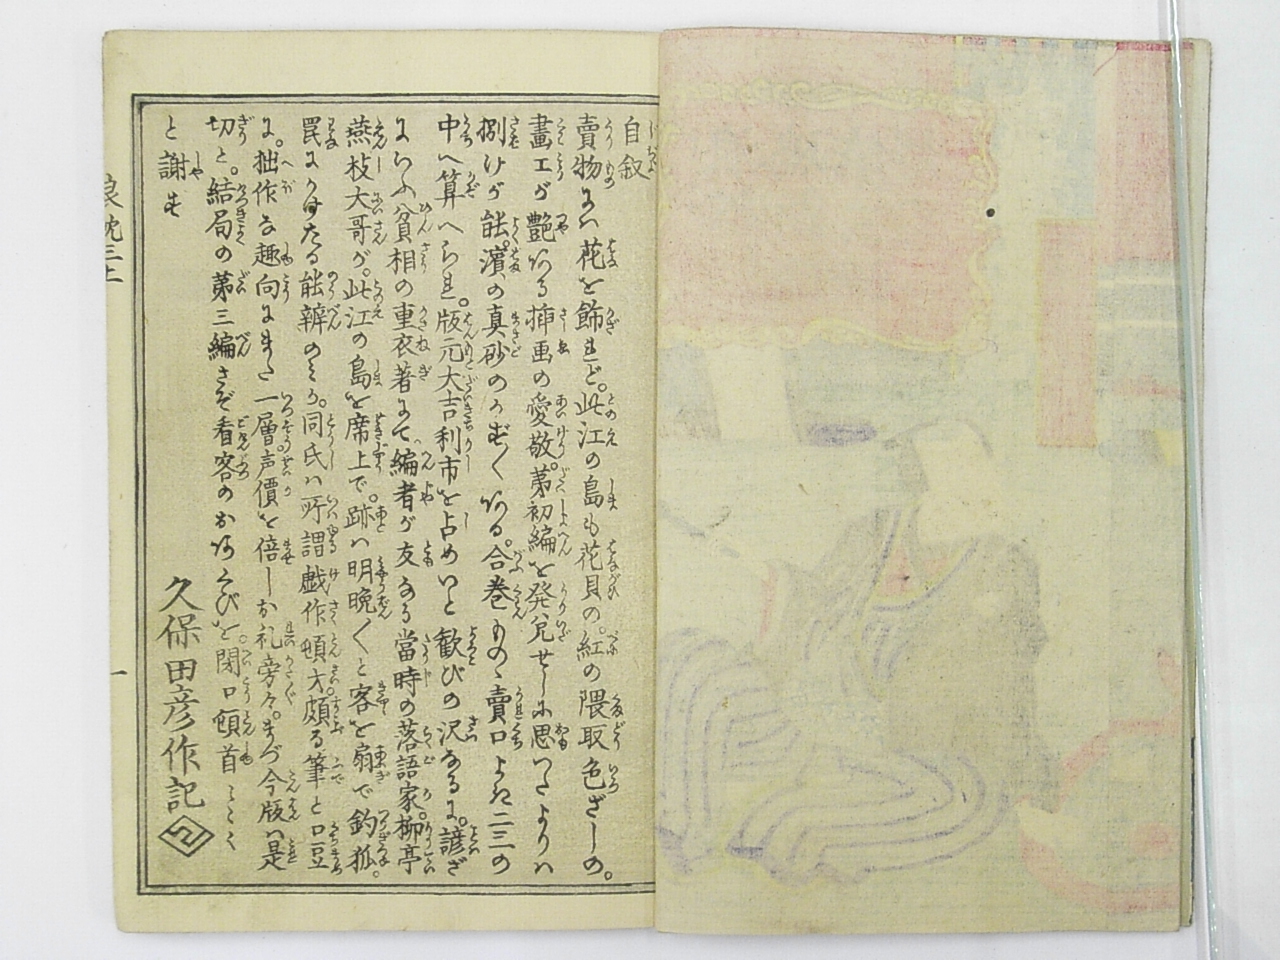 自叙
賣物には花を飾れど。此江の島も花貝の。紅の隈取色ざしの。
畫工が艶ある挿画の愛敬。第初編を発兌せしに思つたよりハ
捌けが能。濵の真砂のかず〱ある。合巻ものゝ賣口よき二三の
中へ算へられ。版元大吉利市を占めいと歓びの沢なるに。諺ざ
にらふ貧相の重衣著にて編者が友なる當時の落語家。柳亭
燕枝大哥が。此江の島を席上で。跡ハ明晩〱と客を扇で釣狐。
罠にかけたる能辨のミか。同氏ハ所謂戯作頓才。頗る筆と口豆
に。拙作な趣向にまた一層声價を倍しか礼旁々。まづ今版ハ是
切と。結局の第三編さぞ看客のおあくびを。閉口頓首とミく
と謝す
久保田彦作記
三上
一